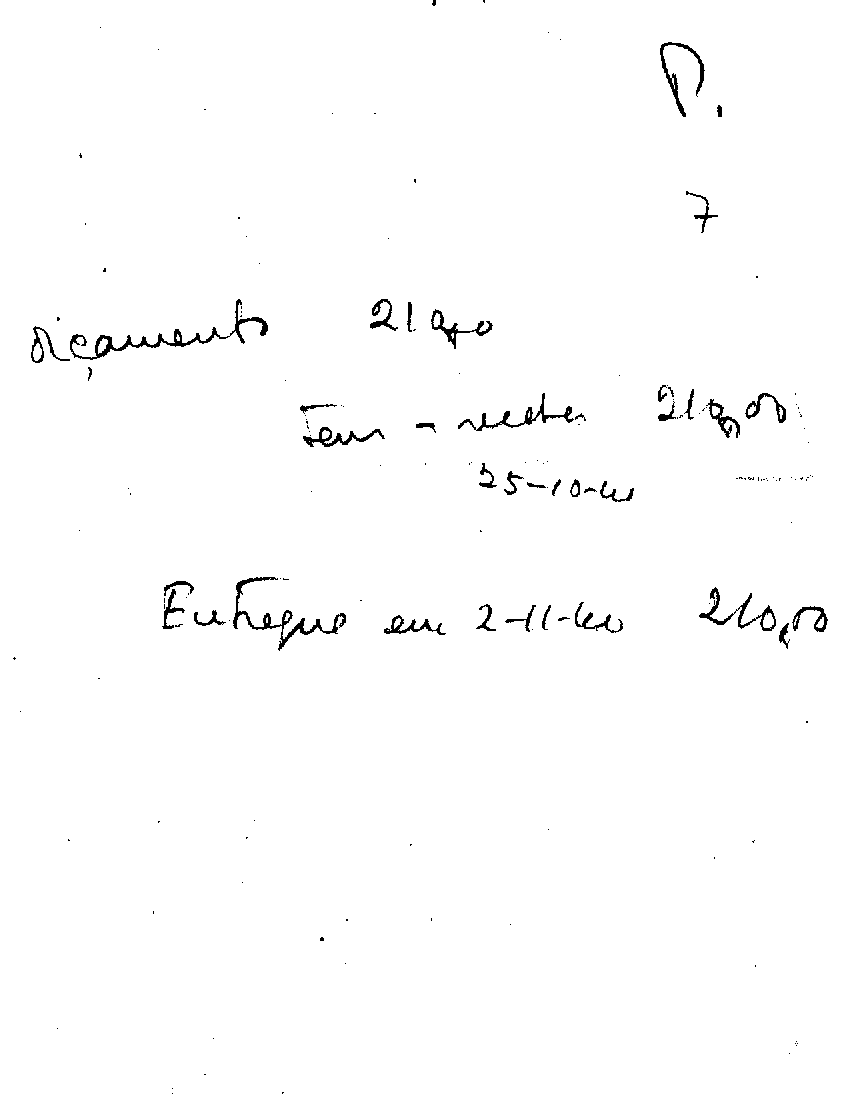 P.
7
orçamento 210,00
Tem a receber 210,00
25-10-60
Entregue em 2-11-60 210,00